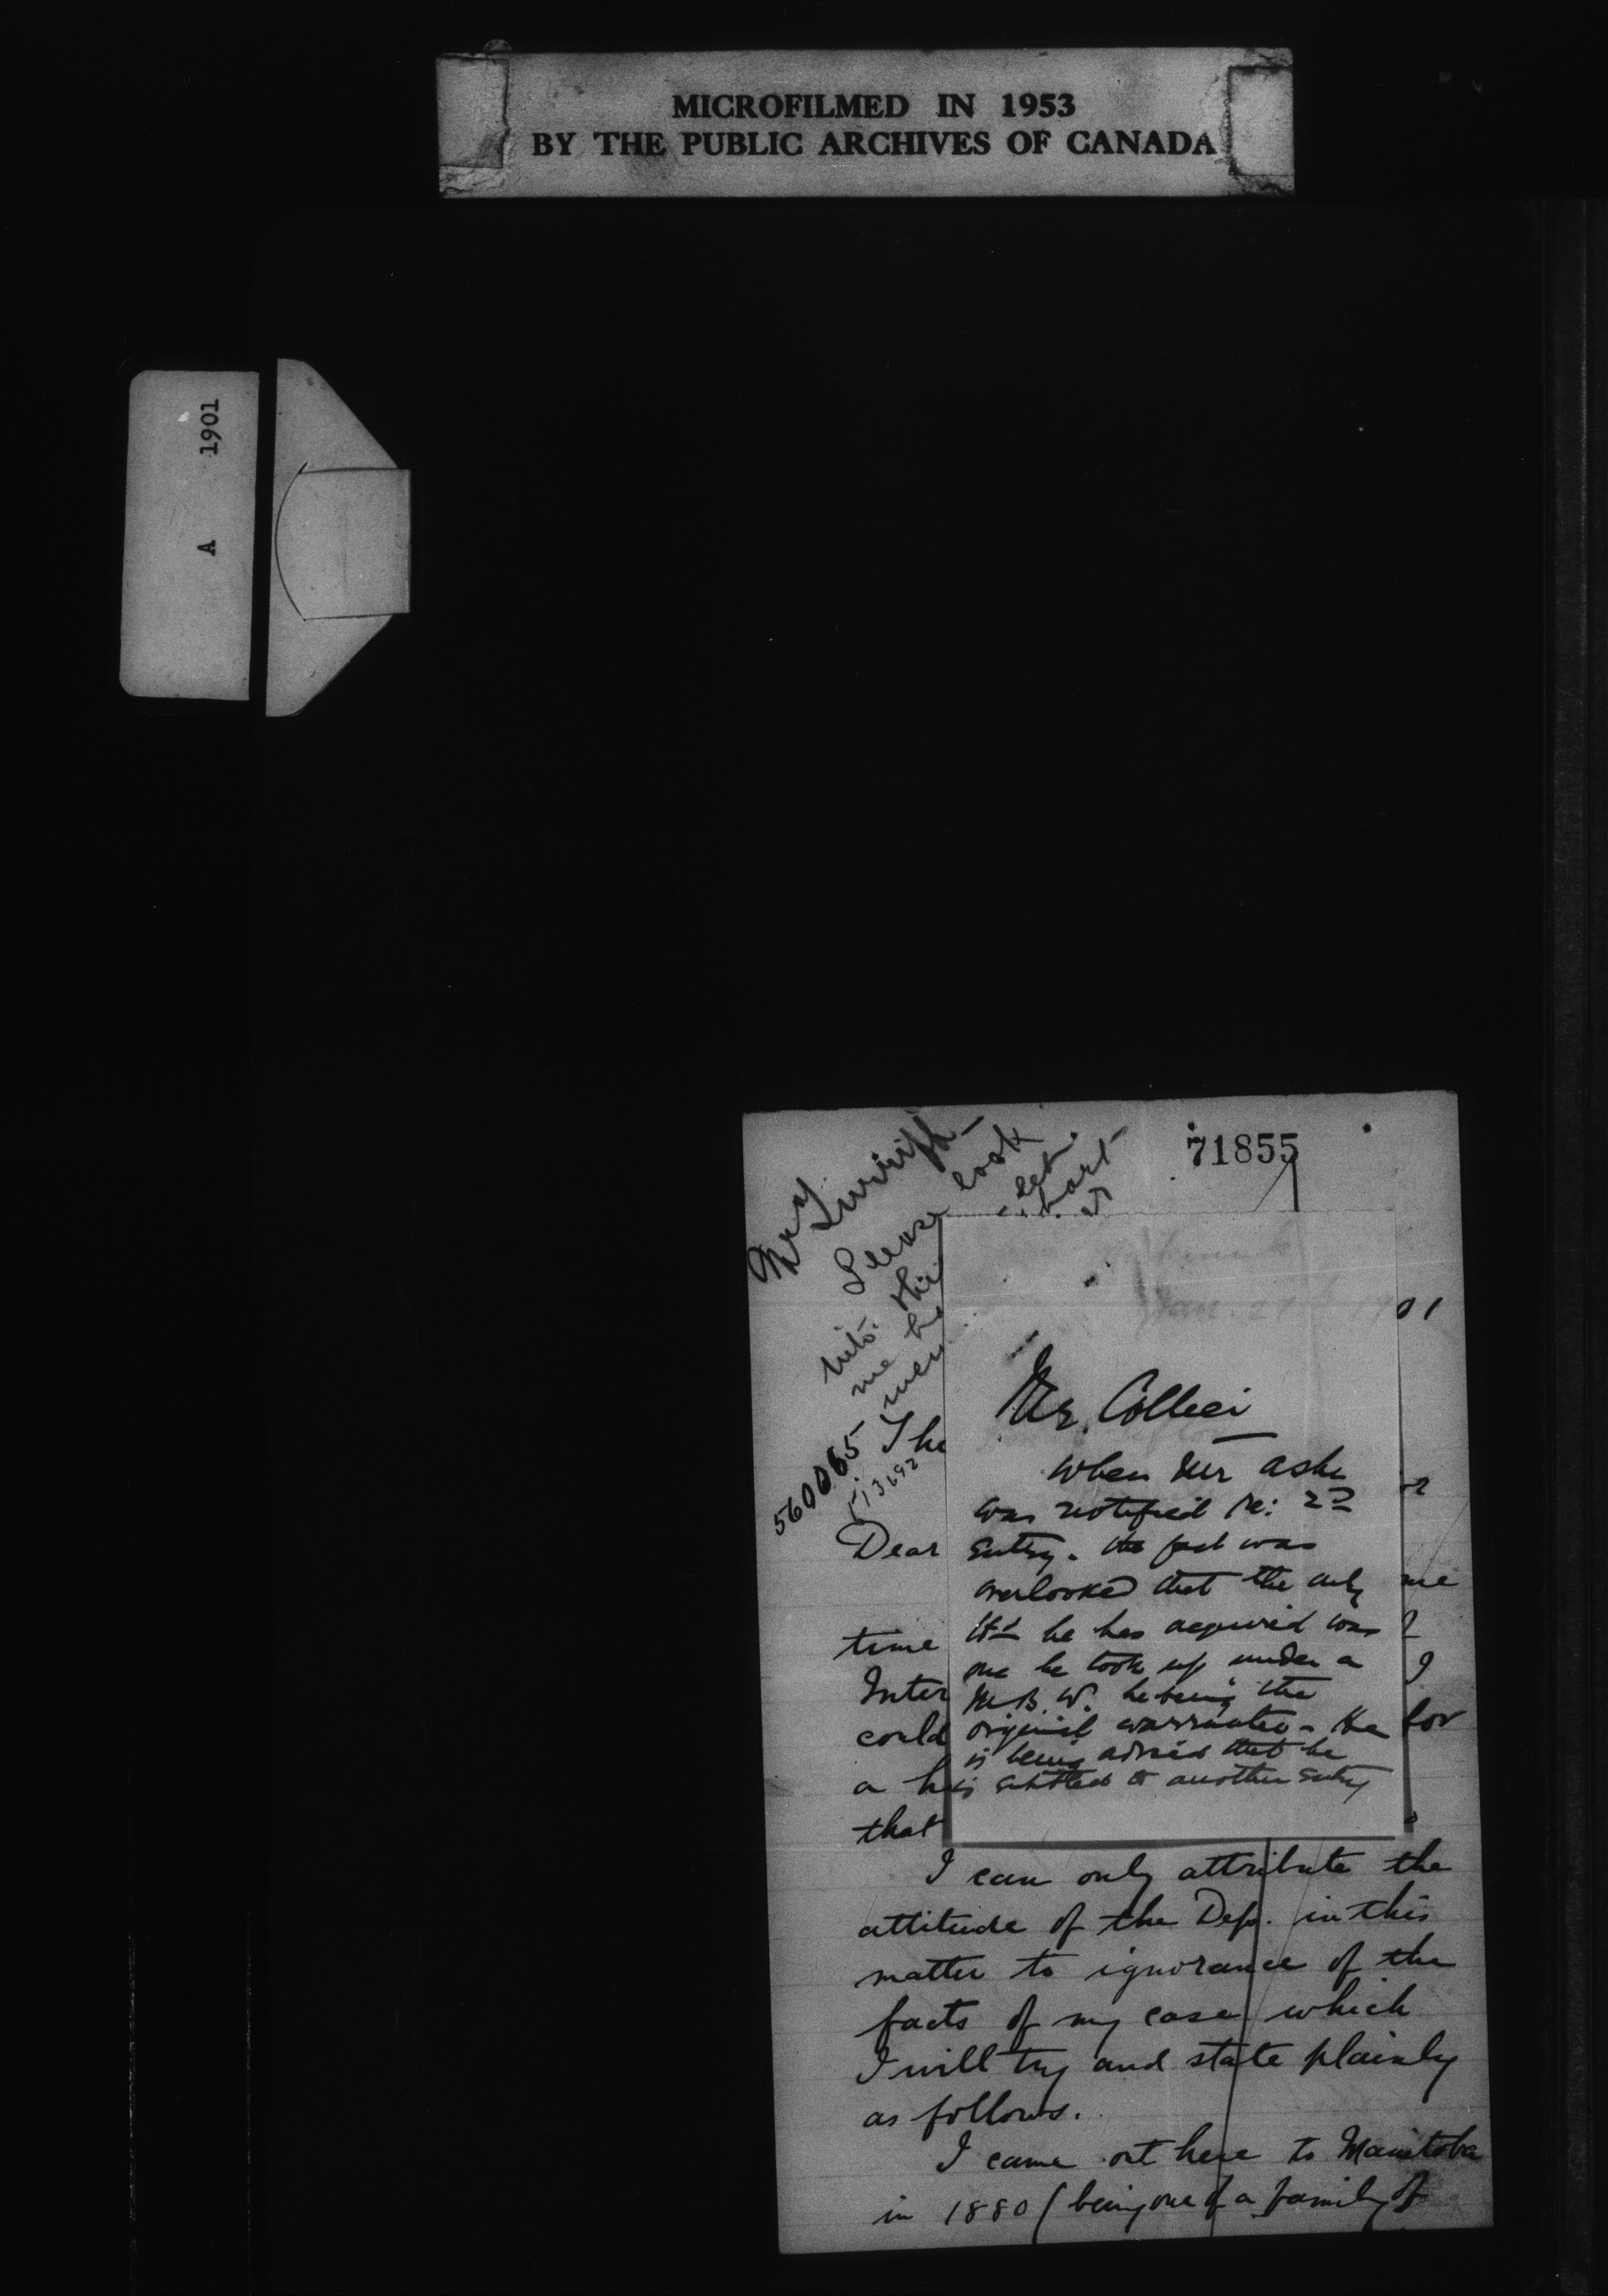 MICROFILMED IN 1953
BY THE PUBLIC ARCHIVES OF CANADA
1901
A
71855
Please look
into this
me
560065
The
01
Dear
Mr.
When Mr Ashe
was notified re: 2nd
Entry. the fact was
overlooked that the only me
time Hd he has acquired was
Inter one he took up under a I
could M.B.W. he being the
original warrantee - He for
is being advised that he
a h is entitled to another Entry
that
I can only attribute the
attitude of the Dep. in this
matter to ignorance of the
facts of my case which
I will try and state plainly
as follows.
I came out here to Manitoba
in 1880 (being one of a family of